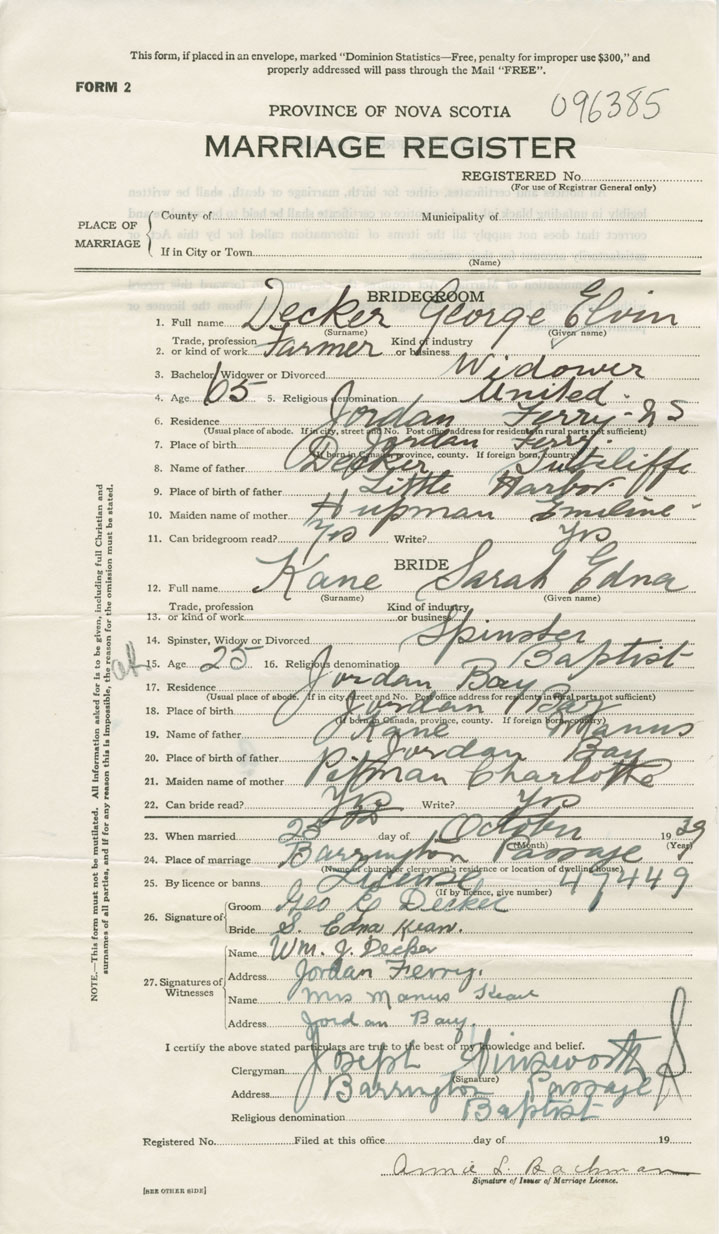 This form, if placed in an envelope, marked "Dominion Statistics—Free, penalty for improper use $300," and
properly addressed will pass through the Mail "FREE".
FORM 2
096385
PROVINCE OF NOVA SCOTIA
MARRIAGE REGISTER
REGISTERED No.
(For use of Registrar General only)
PLACE OF MARRIAGE
County of Municipality of
If in City or Town
(Name)
BRIDEGROOM
1. Full name Decker George Elvin
(Surname) (Given name)
2. Trade, profession or kind of work Farmer Kind of industry or business
3. Bachelor, Widower or Divorced Widower
4. Age 65 5. Religious denomination United
6. Residence Jordan Ferry - NS
(Usual place of abode. If in city, street and No. Post office address for residents in rural parts not sufficient)
7. Place of birth Jordan Ferry.
(If born in Canada, province, county. If foreign born, country)
8. Name of father Decker Sutcliffe
9. Place of birth of father Little Harbor
10. Maiden name of mother Hupman Emiline
11. Can bridegroom read? Yes Write? Yes
BRIDE
12. Full name Kane Sarah Edna
(Surname) (Given name)
13. Trade, profession or kind of work Kind of industry or business
14. Spinster, Widow or Divorced Spinster
15. Age 25 16. Religious denomination Baptist
17. Residence Jordan Bay
(Usual place of abode. If in city, street and No. Post office address for residents in rural parts not sufficient)
18. Place of birth Jordan Bay
(If born in Canada, province, county. If foreign born, country)
19. Name of father Kane Manus
20. Place of birth of father Jordan Bay
21. Maiden name of mother Pitman Charlotte
22. Can bride read? Yes Write? Yes
23. When married 25th day of October 1939
(Month) (Year)
24. Place of marriage Barrington Passage
(Name of church or clergyman's residence or location of dwelling house)
25. By licence or banns License 47449
(If by licence, give number)
26. Signature of
Groom Geo E Decker
Bride S. Edna Kean.
27. Signatures of Witnesses
Name Wm. J. Decker
Address Jordan Ferry.
Name Mrs Manus Kean
Address Jordan Bay
I certify the above stated particulars are true to the best of my knowledge and belief.
Clergyman Joseph Ainsworth
(Signature)
Address Barrington Passage
Religious denomination Baptist
Registered No. Filed at this office day of 19
Annie L. Bachman
Signature of Issuer of Marriage Licence.
[SEE OTHER SIDE]
NOTE.—This form must not be mutilated. All Information asked for is to be given, including full Christian and
surnames of all parties, and if for any reason this is impossible, the reason for the omission must be stated.